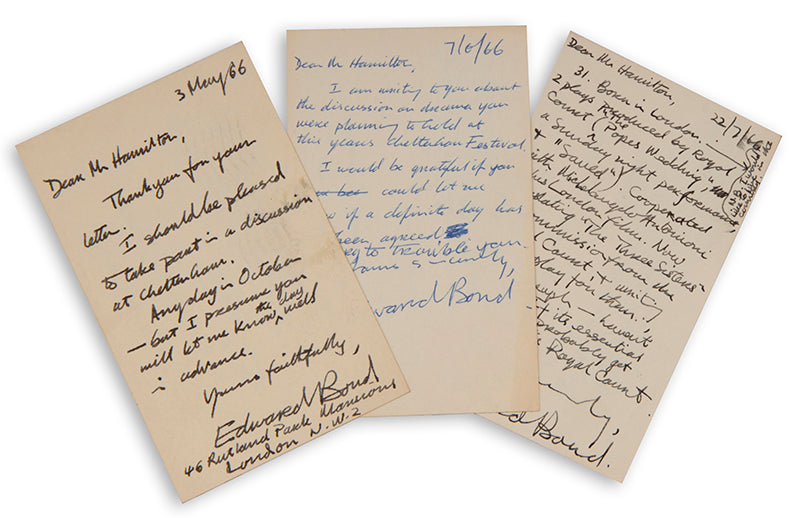 3 May 66
Dear Mr Hamilton,
Thank you for your
letter.
I should be pleased
to take part in a discussion
at Cheltenham.
Any day in October
— but I presume you
will let me know the day well
in advance.
Yours faithfully,
Edward Bond
46 Rutland Park Mansions
London N.W.2
7/6/66
Dear Mr Hamilton,
I am writing to you about
the discussion on drama you
were planning to hold at
this years Cheltenham Festival.
I would be grateful if you
could let me
if a definite day has
been agreed
to trouble you.
Yours sincerely,
Edward Bond
22/7/66
Dear Mr Hamilton,
31. Born in London.
2 plays produced by Royal
Court (Popes Wedding,
a Sunday night performance,
+ "Saved"). Cooperated
with Michelangelo Antonioni
London film. Now
"The Three Sisters"
commission from the
Court &
play for them.
haven't
its essential
probably get
Royal Court
Bond.